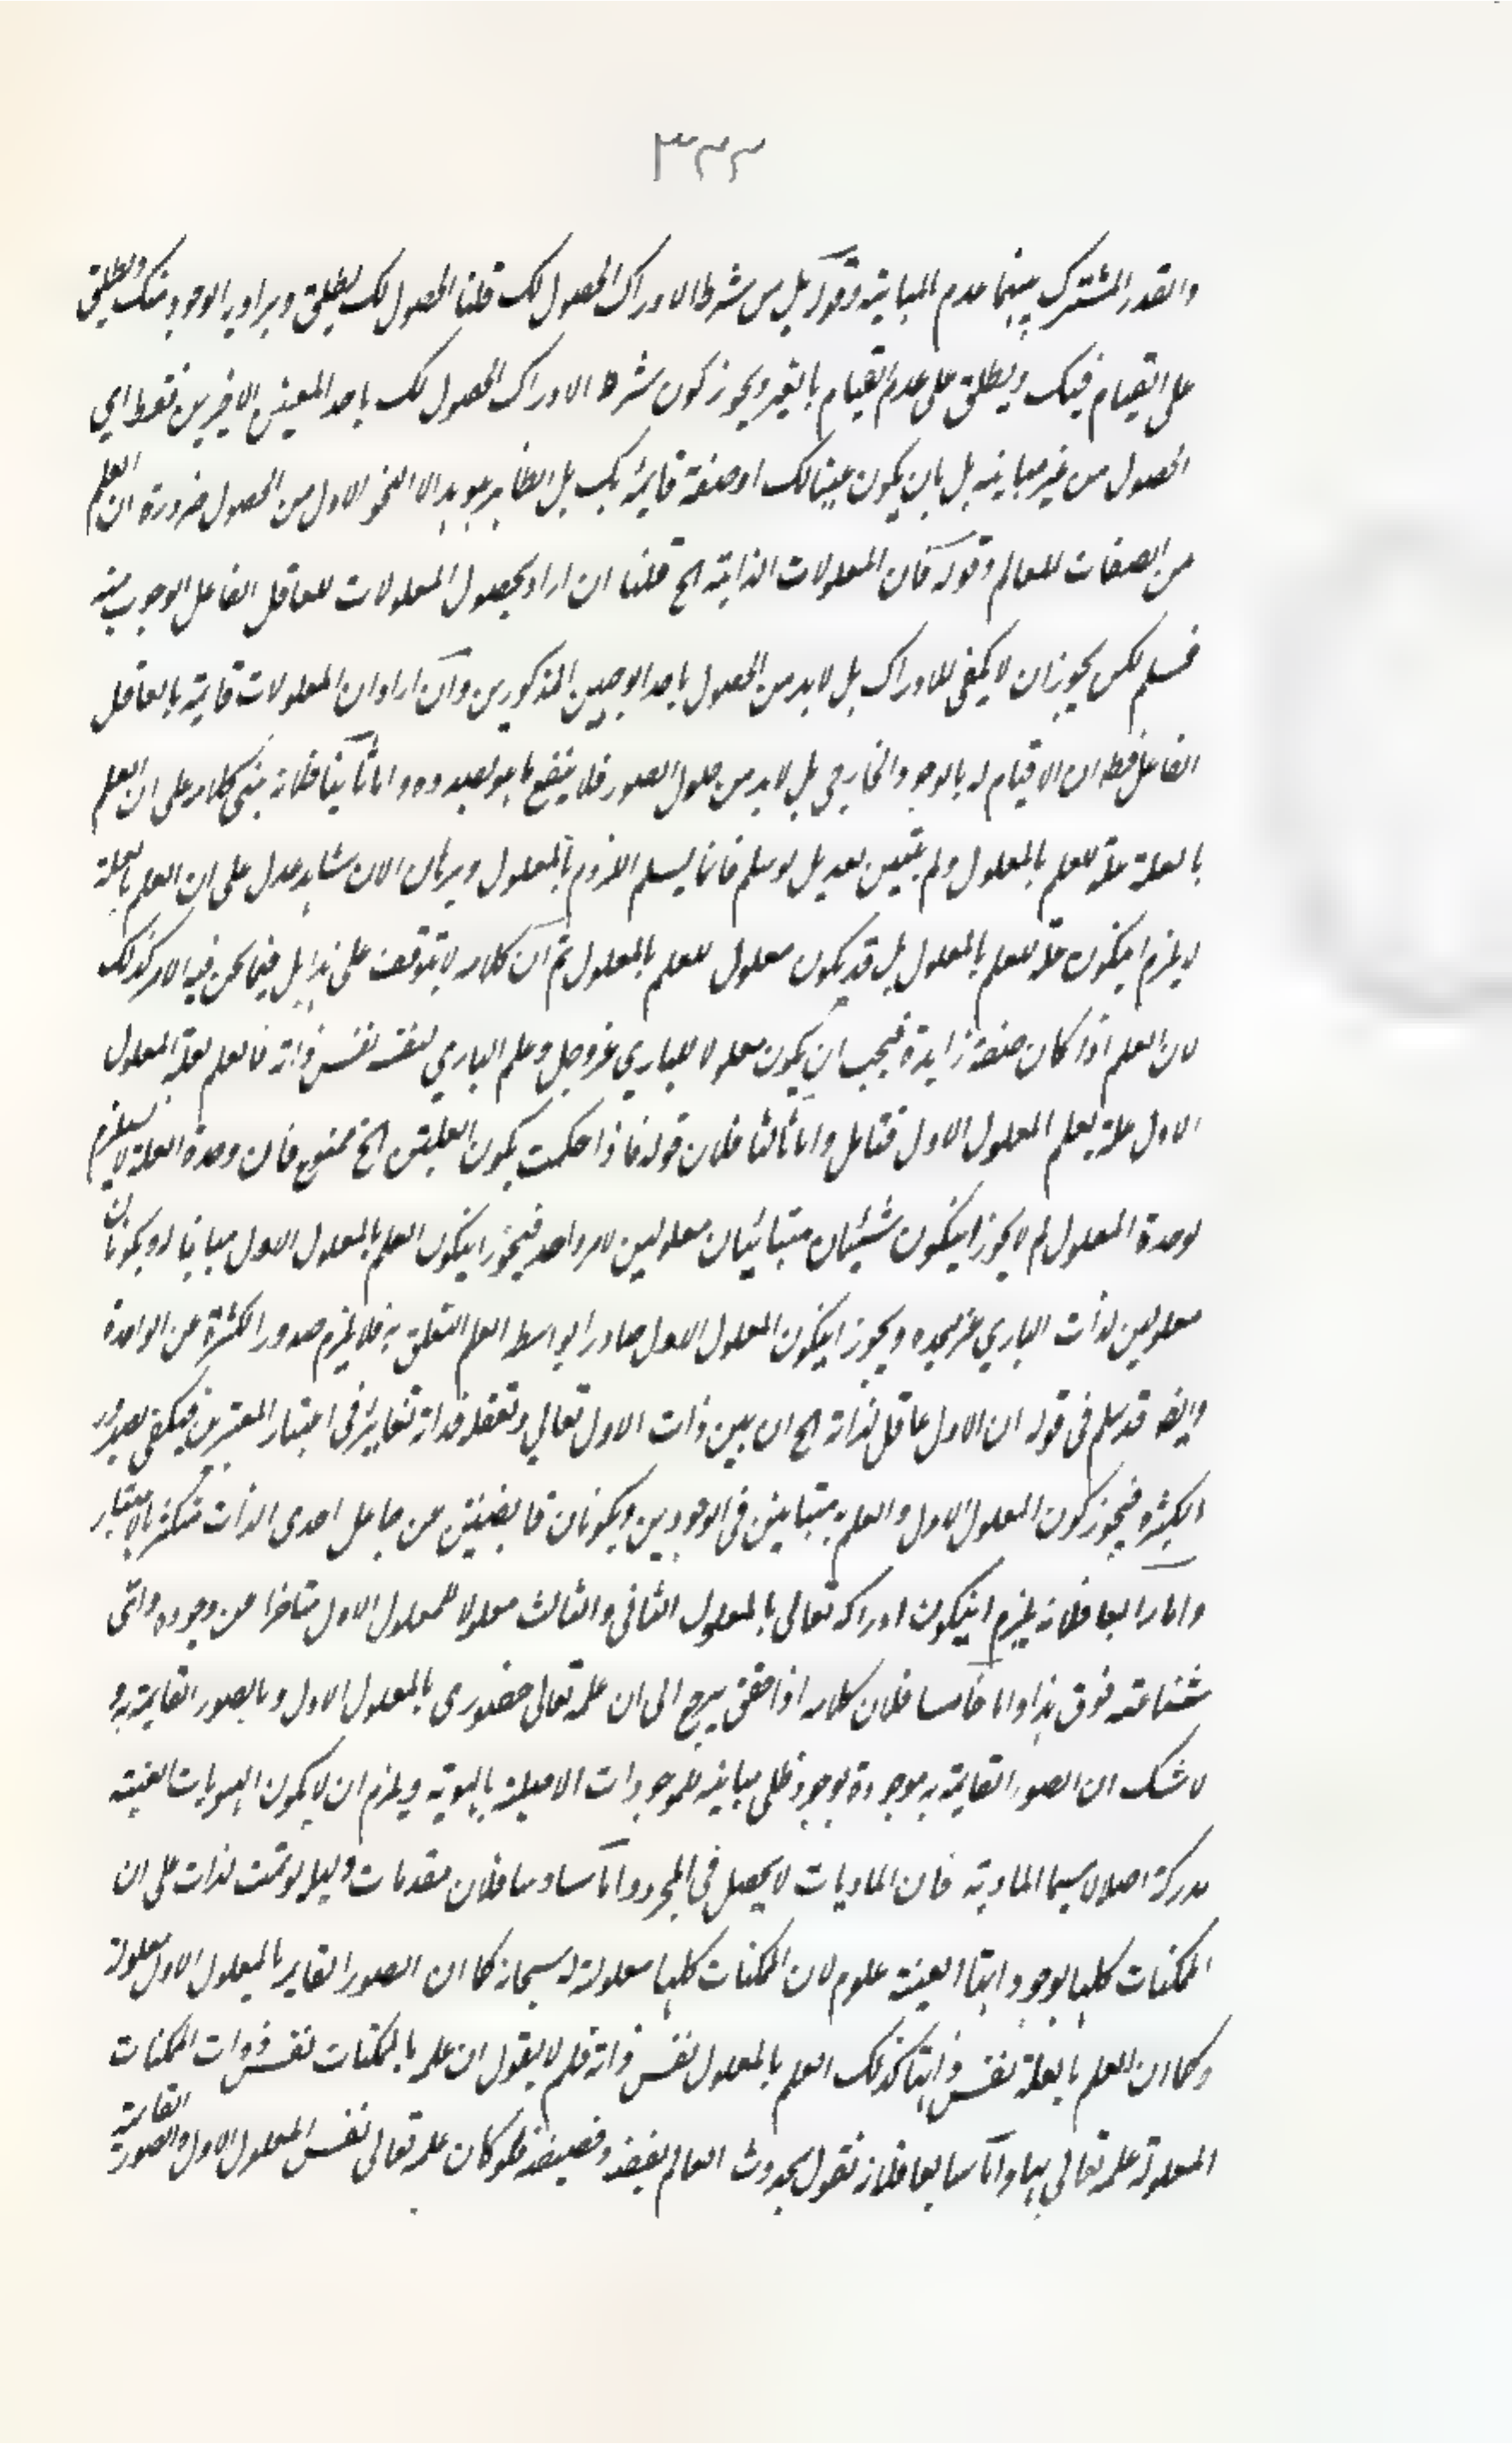 ٣٢٢
والقدر المشترك بينهما عدم المباينة وقوله بل من شرط الادراك الحصول لك قلنا الحصول لك يطلق ويراد به الوجود منك ويطلق
على القيام فيك ويطلق على عدم القيام بالغير ويجوز كون شرط الادراك الحصول لك باحد المعنيين الاخيرين فقط اي
الحصول من غير مباينة بل بان يكون عينا لك او صفة قائمة بك بل الظاهر هو هذا لا النحو الاول من الحصول ضرورة ان العلم
من الصفات للعالم وقوله فان المعلولات الذاتية الخ قلنا ان اراد بحصول المعلولات للعاقل الفاعل الوجوب منه
فمسلم لكن يجوز ان لا يكفى للادراك بل لابد من الحصول باحد الوجهين المذكورين وان اراد ان المعلولات قائمة بالعاقل
الفاعل فظ ان لا قيام له بالوجود الخارجي بل لابد من حلول الصور فلا ينفع ما هو بصدده واما ثانيا فلانه بنى كلامه على ان العلم
بالعلة علة للعلم بالمعلول ولم يتبين بعد بل لو سلم فانما يسلم اللزوم بالمعلول وبرهان الان شاهد عدل على ان العلم بالعلة
لا يلزم ايكون علة للعلم بالمعلول بل قد يكون معلول للعلم بالمعلول ثم ان كلامه لا يتوقف على هذا بل فيما نحن فيه الامر كذلك
لان العلم اذا كان صفة زايدة فيجب ان يكون معلولا للباري عز وجل وعلم الباري لنفسه نفس ذاته فالعلم بعلة المعلول
الاول علة لعلم المعلول الاول فتامل واما ثالثا فلان قوله فاذا حكمت بكون العلتين الخ ممنوع فان وحدة العلة لا يستلزم
لوحدة المعلول لم لا يجوز ايكون شيئان متبائنيان معلولين لامر واحد فيجوز ايكون العلم بالمعلول الاول مباينا له ويكونان
معلولين لذات الباري عز مجده ويجوز ايكون المعلول الاول صادرا بواسطة العلم المتعلق به فلا يلزم صدور الكثرة عن الواحدة
وايضا قد سلم فى قوله ان الاول عاقل لذاته الخ ان بين ذات الاول تعالي وتعقله لذاته تغاير فى اعتبار المعتبرين فيكفى بصدور
الكثرة فيجوز كون المعلول الاول والعلم به متباينين فى الوجودين ويكونان فايضين من جاعل احدى الذات متكثر بالاعتبار
واما رابعا فلانه يلزم ايكون ادراكه تعالى بالمعلول الثانى والثالث معلولا للمعلول الاول متاخرا عن وجوده واي
شناعة فوق هذا واما خامسا فلان كلامه اذا حقق يرجع الى ان علمه تعالى حضوري بالمعلول الاول وبالصور القايمة به و
لا شك ان الصور القايمة به موجودة بوجود ظلى مباينة للموجودات الاصيلة بالهوية ويلزم ان لا يكون الهويات العينية
مدركة اصلا لا سيما المادية فان الماديات لا يحصل فى المجرد واما سادسا فلان مقدمات دليله لو تمت لذات على ان
الممكنات كلها بوجوداتها العينية علوم لان الممكنات كلها معلولة له سبحانه كما ان الصور القايمة بالمعلول الاول معلولة
وكما ان العلم بالعلة نفس ذاتها كذلك العلم بالمعلول نفس ذاته فلم لا يقول ان علمه بالممكنات نفس ذوات الممكنات
المعلولة علمه تعالى بها واما سابعا فلانه نقول بحدوث العالم بغضه وفضيضه فلو كان علمه تعالى نفس المعلول الاول والصور القايمة